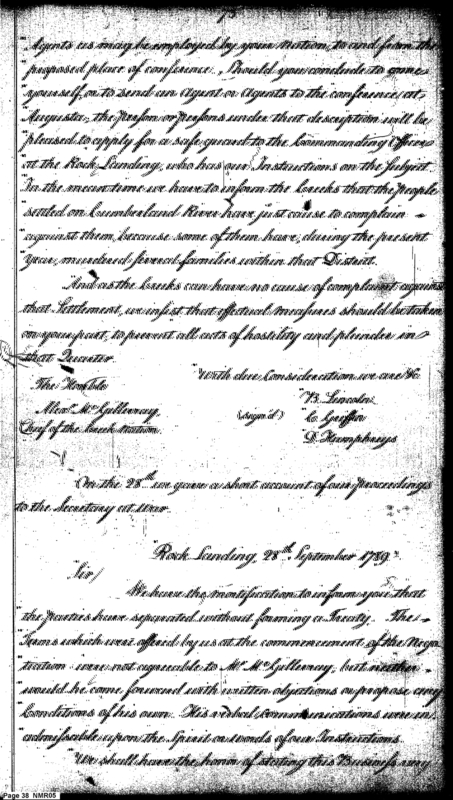 "Agents as may be employed by your nation, to and from the
"proposed place of conference. Should you conclude to come
"yourself, or to send an Agent or Agents to the conference at
"Augusta, the person or persons under that description will be
"pleased to apply for a safe guard to the Commanding Officer
"at the Rock Landing, who has our Instructions on the subject.
"In the mean time we have to inform the Creeks that the people
"settled on Cumberland River have just cause to complain
"against them, because some of them have, during the present
"Year, murdered several families within that District.
"And as the Creeks can have no cause of complaint against
"that Settlement, we insist that effectual measures should be taken
"on your part, to prevent all acts of hostility and plunder in
"that Quarter.
"With due Consideration we are &c.
"The Honble
"Alexr. McGillivray,
Chief of the Creek nation.
(signed)
"B. Lincoln
"C. Griffin
"D. Humphreys
On the 28th we gave a short account of our proceedings
to the Secretary at War.
"Rock Landing, 28th September 1789."
"Sir/
"We have the mortification to inform you that
"the parties have separated without forming a Treaty. The
"Terms which were offered by us at the commencement of the Nego
"tiation were not agreeable to Mr. McGillivray, but neither
"would he come forward with written objections or propose any
"Conditions of his own. His verbal communications were in
"admissable upon the Spirit or words of our Instructions.
"We shall have the honor of stating this Business very
Page 38 NMR05